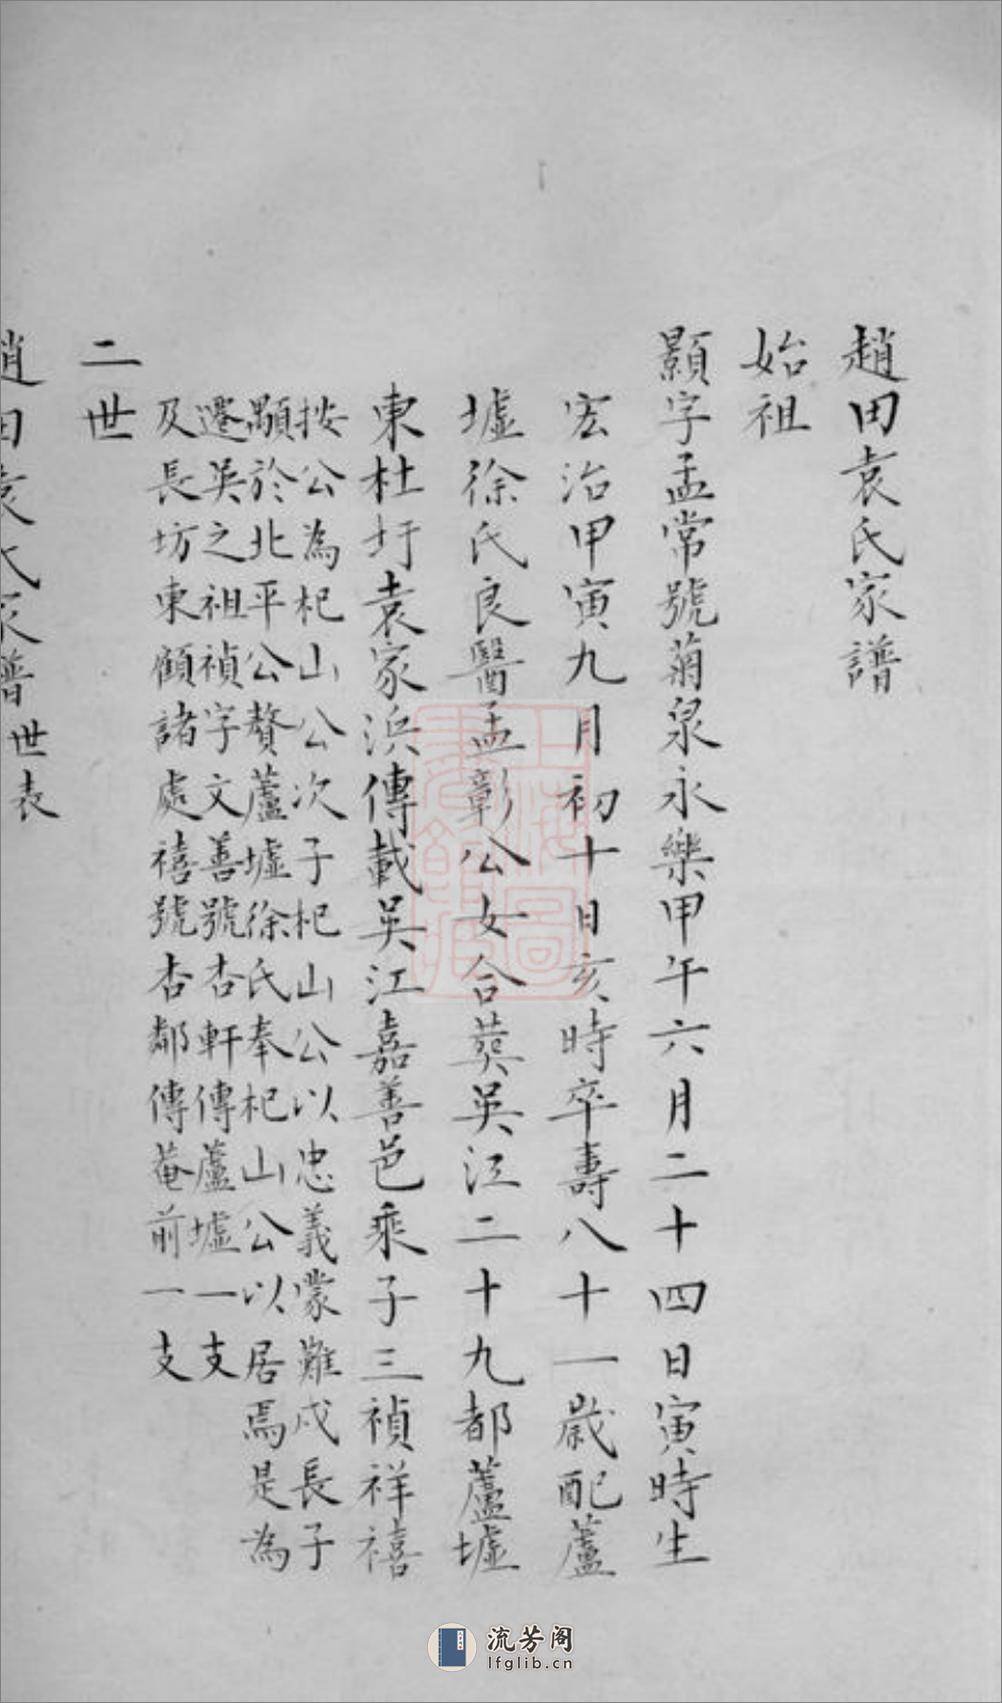 趙田袁氏家譜
始祖
顥字孟常號菊泉永樂甲午六月二十四日寅時生
宏治甲寅九月初十日亥時卒壽八十一歲配蘆
墟徐氏良醫孟彰公女合葬吳江二十九都蘆墟
東杜圩袁家浜傳載吳江嘉善邑乘子三禎祥禧
按公為杞山公次子杞山公以忠義蒙難戍長子
顒於北平公贅蘆墟徐氏奉杞山公以居焉是為
遷吳之祖禎字文善號杏軒傳蘆墟一支
及長坊東顧諸處禧號杏鄰傳菴前一支
二世
趙田袁氏家譜 世表
上海圖書館藏
流芳阁
lfglib.cn